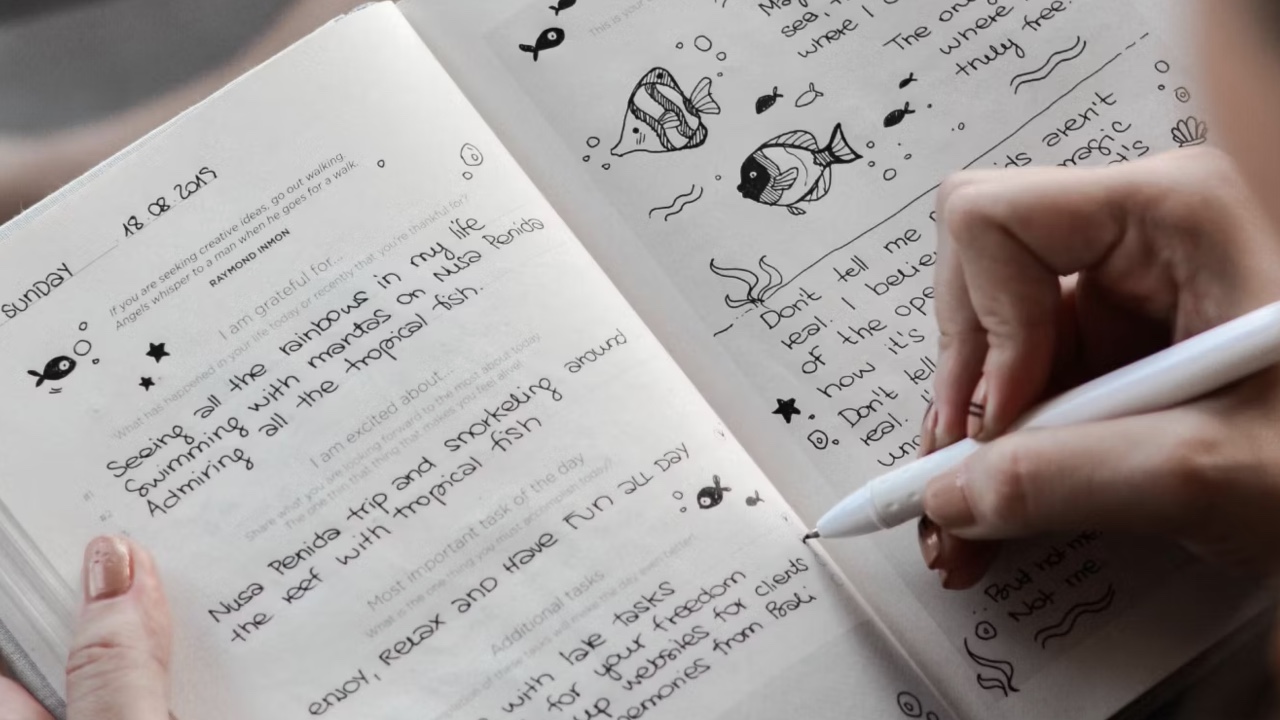 SUNDAY 18.08.2019
If you are seeking creative ideas, go out walking.
Angels whisper to a man when he goes for a walk.
RAYMOND INMON
I am grateful for...
What has happened in your life today or recently that you're thankful for?
#1 Seeing all the rainbows in my life
#2 Swimming with mantas on Nusa Penida
Admiring all the tropical fish.
I am excited about...
Share what you are looking forward to the most about today
The one thin that thing that makes you feel alive
Nusa Penida trip and snorkeling around
the reef with tropical fish
Most important task of the day
What is the one thing you must accomplish today?
ENJOY, RELAX AND HAVE FUN ALL DAY
Additional tasks
will make the day even better
with late tasks
for your freedom
up websites for clients
memories from Bali
This is your
sea,
where I
The
where
truly free.
aren't
magic
Don't tell me
real. I
of the
how it's
Don't tell
real.
But not me.
Not me.